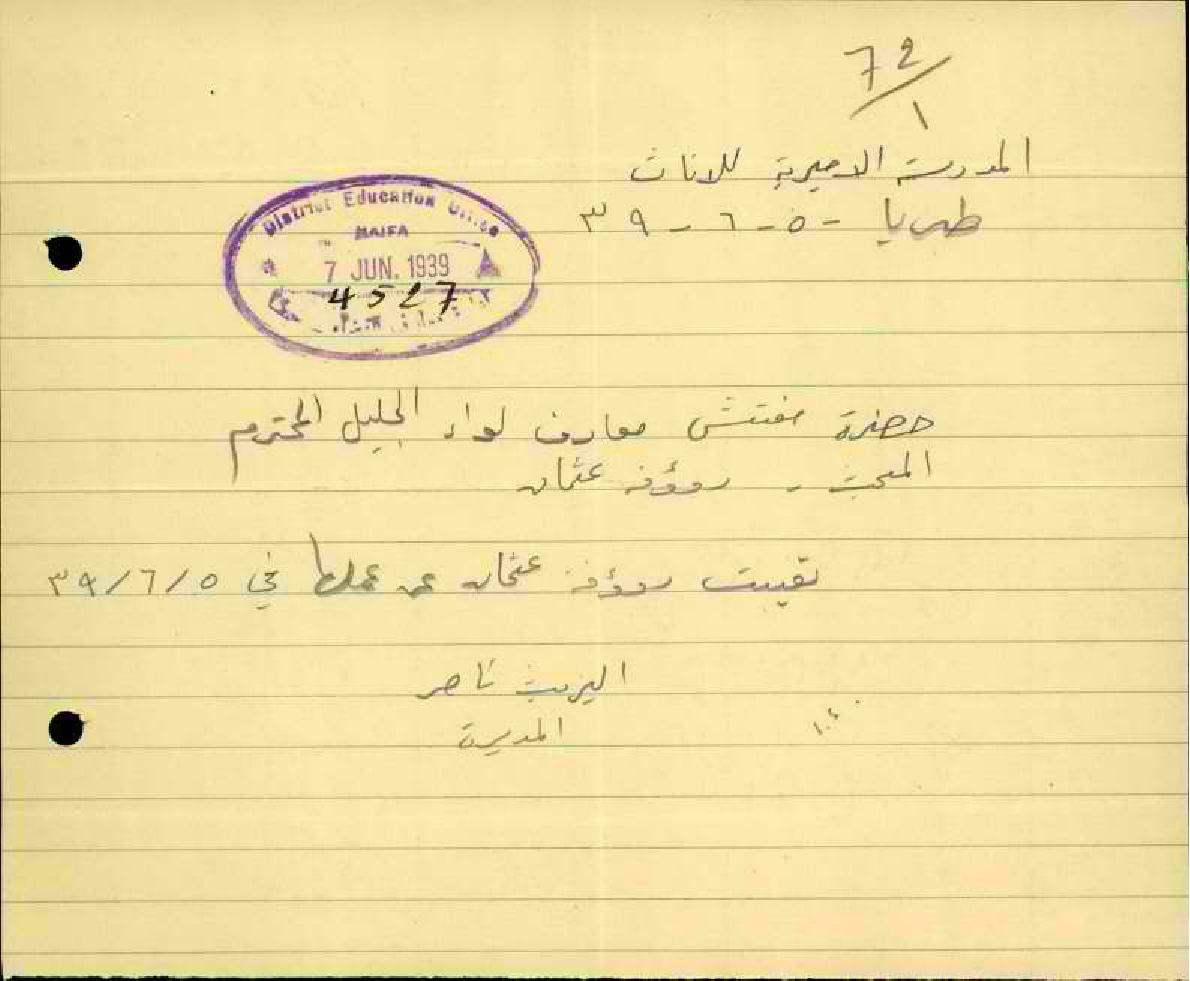 72/1
المدرسة الاميرية للاناث
طبريا - ٥ - ٦ - ٣٩
District Education Office
HAIFA
7 JUN. 1939
4527
حضرة مفتش معارف لواء الجليل المحترم
المبحث - رؤوفه عثمان
تغيبت رؤوفه عثمان عن عملها في ٣٩/٦/٥
اليزبيث ناصر
المديرة